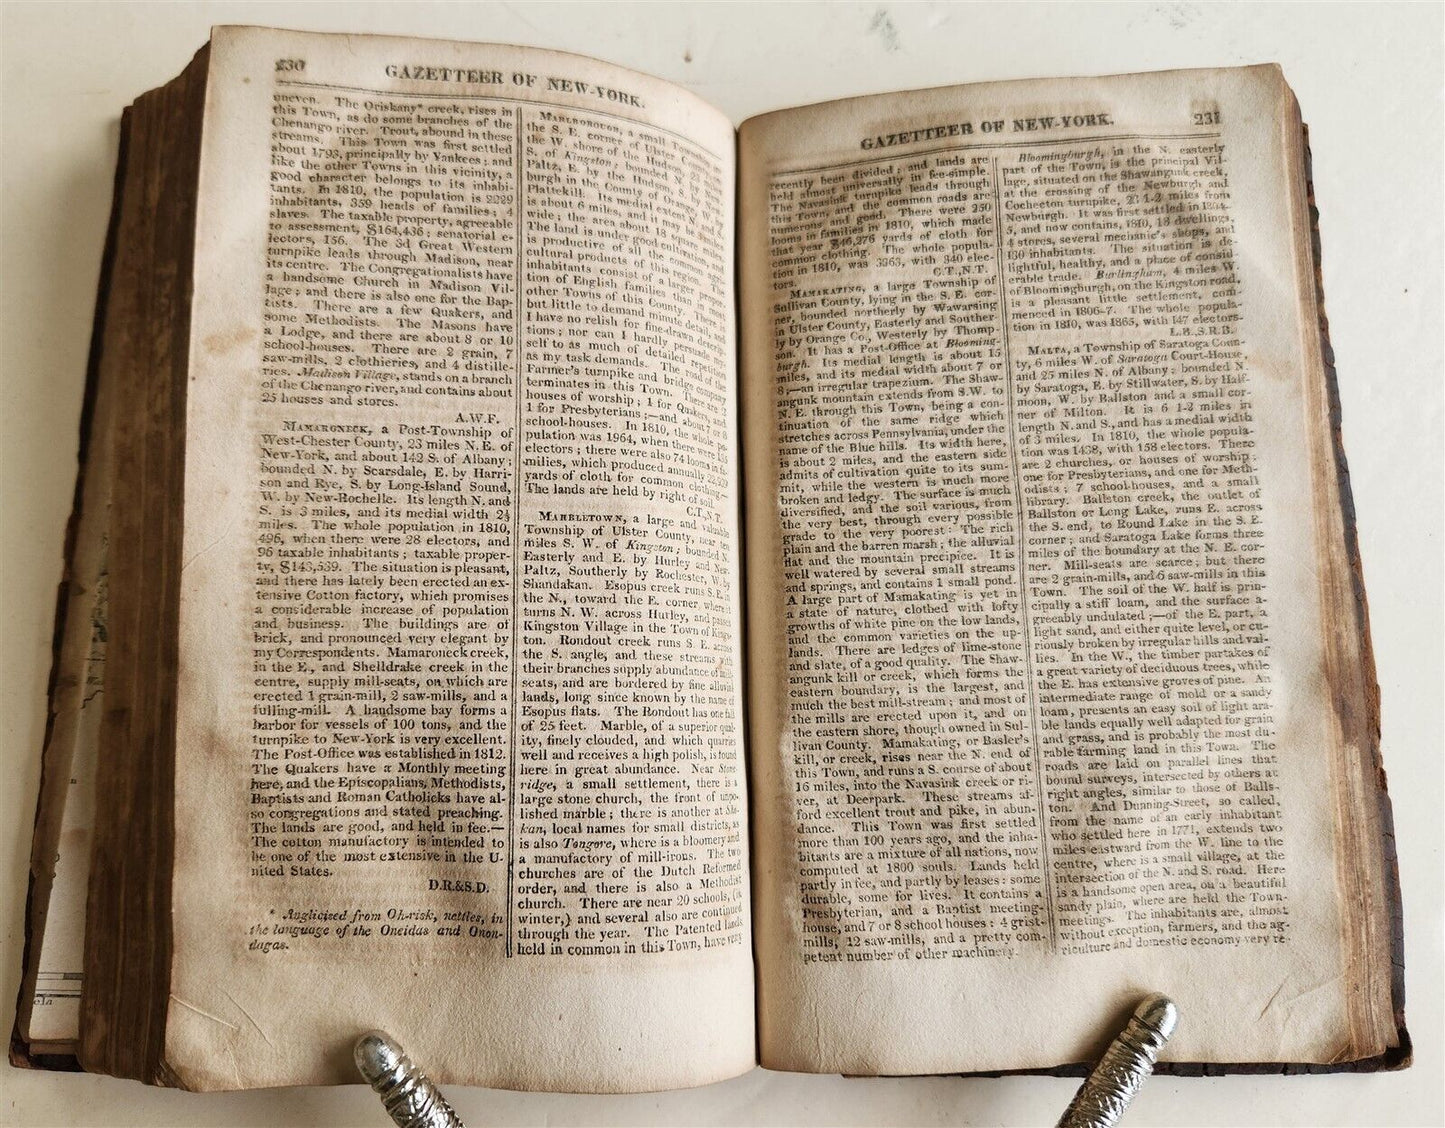 230
GAZETTEER OF NEW-YORK.
uneven. The Oriskany* creek, rises in
this Town, as do some branches of the
Chenango river. Trout, abound in these
streams. This Town was first settled
about 1793, principally by Yankees; and
like the other Towns in this vicinity, a
good character belongs to its inhabi-
tants. In 1810, the population is 2229
inhabitants, 359 heads of families; 4
slaves. The taxable property, agreeable
to assessment, $164,436; senatorial e-
lectors, 156. The 3d Great Western
turnpike leads through Madison, near
its centre. The Congregationalists have
a handsome Church in Madison Vil-
lage; and there is also one for the Bap-
tists. There are a few Quakers, and
some Methodists. The Masons have
a Lodge, and there are about 8 or 10
school-houses. There are 2 grain, 7
saw-mills, 2 clothieries, and 4 distille-
ries. Madison Village, stands on a branch
of the Chenango river, and contains about
25 houses and stores.
A.W.F.
MAMARONECK, a Post-Township of
West-Chester County, 23 miles N. E. of
New-York, and about 142 S. of Albany;
bounded N. by Scarsdale, E. by Harri-
son and Rye, S. by Long-Island Sound,
W. by New-Rochelle. Its length N. and
S. is 3 miles, and its medial width 2½
miles. The whole population in 1810,
496, when there were 28 electors, and
96 taxable inhabitants; taxable proper-
ty, $143,539. The situation is pleasant,
and there has lately been erected an ex-
tensive Cotton factory, which promises
a considerable increase of population
and business. The buildings are of
brick, and pronounced very elegant by
my Correspondents. Mamaroneck creek,
in the E., and Shelldrake creek in the
centre, supply mill-seats, on which are
erected 1 grain-mill, 2 saw-mills, and a
fulling-mill. A handsome bay forms a
harbor for vessels of 100 tons, and the
turnpike to New-York is very excellent.
The Post-Office was established in 1812.
The Quakers have a Monthly meeting
here, and the Episcopalians, Methodists,
Baptists and Roman Catholicks have al-
so congregations and stated preaching.
The lands are good, and held in fee.—
The cotton manufactory is intended to
be one of the most extensive in the U-
nited States.
D.R.&S.D.
* Anglicised from Oh-risk, nettles, in
the language of the Oneidas and Onon-
dagas.
MARLBOROUGH, a small Township in
the S. E. corner of Ulster County, on
the W. shore of the Hudson, 23 miles
S. of Kingston; bounded N. by New-
Paltz, E. by the Hudson, S. by New-
burgh in the County of Orange, W. by
Plattekill. Its medial extent N. and S.
is about 6 miles, and it may be 3 miles
wide; the area about 18 square miles.
The land is under good cultivation, and
is productive of all the common agri-
cultural products of this region. The
inhabitants consist of a larger propor-
tion of English families than in most
other Towns of this County. There is
but little to demand minute details, and
I have no relish for fine-drawn descrip-
tions; nor can I hardly persuade my-
self to as much of detailed repetitions
as my task demands. The road of the
Farmer's turnpike and bridge company
terminates in this Town. There are 2
houses of worship; 1 for Quakers, and
1 for Presbyterians;—and about 7 or 8
school-houses. In 1810, the whole po-
pulation was 1964, when there were 155
electors; there were also 74 looms in fa-
milies, which produced annually 22,929
yards of cloth for common clothing.—
The lands are held by right of soil.
C.T.,N.T.
MARBLETOWN, a large and valuable
Township of Ulster County, near ten
miles S. W. of Kingston; bounded N.
Easterly and E. by Hurley and New-
Paltz, Southerly by Rochester, W. by
Shandakan. Esopus creek runs S. E. in
the N., toward the E. corner, where it
turns N. W. across Hurley, and passes
Kingston Village in the Town of Kings-
ton. Rondout creek runs S. E. across
the S. angle, and these streams with
their branches supply abundance of mill-
seats, and are bordered by fine alluvial
lands, long since known by the name of
Esopus flats. The Rondout has one fall
of 25 feet. Marble, of a superior qual-
ity, finely clouded, and which quarries
well and receives a high polish, is found
here in great abundance. Near Stone-
ridge, a small settlement, there is a
large stone church, the front of unpo-
lished marble; there is another at Sho-
kan, local names for small districts, as
is also Tongore, where is a bloomery and
a manufactory of mill-irons. The two
churches are of the Dutch Reformed
order, and there is also a Methodist
church. There are near 20 schools, (in
winter,) and several also are continued
through the year. The Patented lands
held in common in this Town, have very
GAZETTEER OF NEW-YORK.
231
recently been divided; and lands are
held almost universally in fee-simple.
The Navasink turnpike leads through
this Town, and the common roads are
numerous and good. There were 250
looms in families in 1810, which made
that year $46,276 yards of cloth for
common clothing. The whole popula-
tion in 1810, was 3363, with 340 elec-
tors.
C.T.,N.T.
MAMAKATING, a large Township of
Sullivan County, lying in the S. E. cor-
ner, bounded northerly by Wawarsing
in Ulster County, Easterly and Souther-
ly by Orange Co., Westerly by Thomp-
son. It has a Post-Office at Blooming-
burgh. Its medial length is about 15
miles, and its medial width about 7 or
8;—an irregular trapezium. The Shaw-
angunk mountain extends from S.W. to
N. E. through this Town, being a con-
tinuation of the same ridge which
stretches across Pennsylvania, under the
name of the Blue hills. Its width here,
is about 2 miles, and the eastern side
admits of cultivation quite to its sum-
mit, while the western is much more
broken and ledgy. The surface is much
diversified, and the soil various, from
the very best, through every possible
grade to the very poorest: The rich
plain and the barren marsh; the alluvial
flat and the mountain precipice. It is
well watered by several small streams
and springs, and contains 1 small pond.
A large part of Mamakating is yet in
a state of nature, clothed with lofty
growths of white pine on the low lands,
and the common varieties on the up-
lands. There are ledges of lime-stone
and slate, of a good quality. The Shaw-
angunk kill or creek, which forms the
eastern boundary, is the largest, and
much the best mill-stream; and most of
the mills are erected upon it, and on
the eastern shore, though owned in Sul-
livan County. Mamakating, or Basler's
kill, or creek, rises near the N. end of
this Town, and runs a S. course of about
16 miles, into the Navasink creek or ri-
ver, at Deerpark. These streams af-
ford excellent trout and pike, in abun-
dance. This Town was first settled
more than 100 years ago, and the inha-
bitants are a mixture of all nations, now
computed at 1800 souls. Lands held
partly in fee, and partly by leases: some
durable, some for lives. It contains a
Presbyterian, and a Baptist meeting-
house, and 7 or 8 school houses: 4 grist-
mills, 12 saw-mills, and a pretty com-
petent number of other machinery.
Bloomingburgh, in the N. easterly
part of the Town, is the principal Vil-
lage, situated on the Shawangunk creek,
at the crossing of the Newburgh and
Cocheeton turnpike, 23 1-2 miles from
Newburgh. It was first settled in 1804,
5, and now contains, 1810, 18 dwellings,
4 stores, several mechanic's shops, and
130 inhabitants. The situation is de-
lightful, healthy, and a place of consid-
erable trade. Burlingham, 4 miles W.
of Bloomingburgh, on the Kingston road,
is a pleasant little settlement, com-
menced in 1806-7. The whole popula-
tion in 1810, was 1865, with 147 electors.
L.B.,S.R.B.
MALTA, a Township of Saratoga Coun-
ty, 6 miles W. of Saratoga Court-House,
and 25 miles N. of Albany: bounded N.
by Saratoga, E. by Stillwater, S. by Half-
moon, W. by Ballston and a small cor-
ner of Milton. It is 6 1-2 miles in
length N. and S., and has a medial width
of 3 miles. In 1810, the whole popula-
tion was 1438, with 158 electors. There
are 2 churches, or houses of worship:
one for Presbyterians, and one for Meth-
odists; 7 school-houses, and a small
library. Ballston creek, the outlet of
Ballston or Long Lake, runs E. across
the S. end, to Round Lake in the S. E.
corner; and Saratoga Lake forms three
miles of the boundary at the N. E. cor-
ner. Mill-seats are scarce; but there
are 2 grain-mills, and 6 saw-mills in this
Town. The soil of the W. half is prin-
cipally a stiff loam, and the surface a-
greeably undulated;—of the E. part, a
light sand, and either quite level, or cu-
riously broken by irregular hills and val-
lies. In the W., the timber partakes of
a great variety of deciduous trees, while
the E. has extensive groves of pine. An
intermediate range of mold or a sandy
loam, presents an easy soil of light ara-
ble lands equally well adapted for grain
and grass, and is probably the most du-
rable farming land in this Town. The
roads are laid on parallel lines that
bound surveys, intersected by others at
right angles, similar to those of Balls-
ton. And Dunning-Street, so called,
from the name of an early inhabitant
who settled here in 1771, extends two
miles eastward from the W. line to the
centre, where is a small village, at the
intersection of the N. and S. road. Here
is a handsome open area, on a beautiful
sandy plain, where are held the Town-
meetings. The inhabitants are, almost
without exception, farmers, and the ag-
riculture and domestic economy very re-